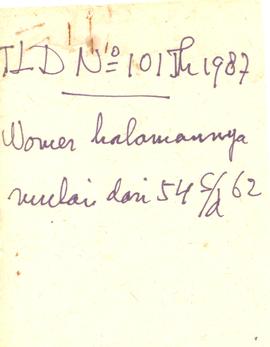 TLD No 101 Th 1987
Nomer halamannya
mulai dari 54 s/d 62